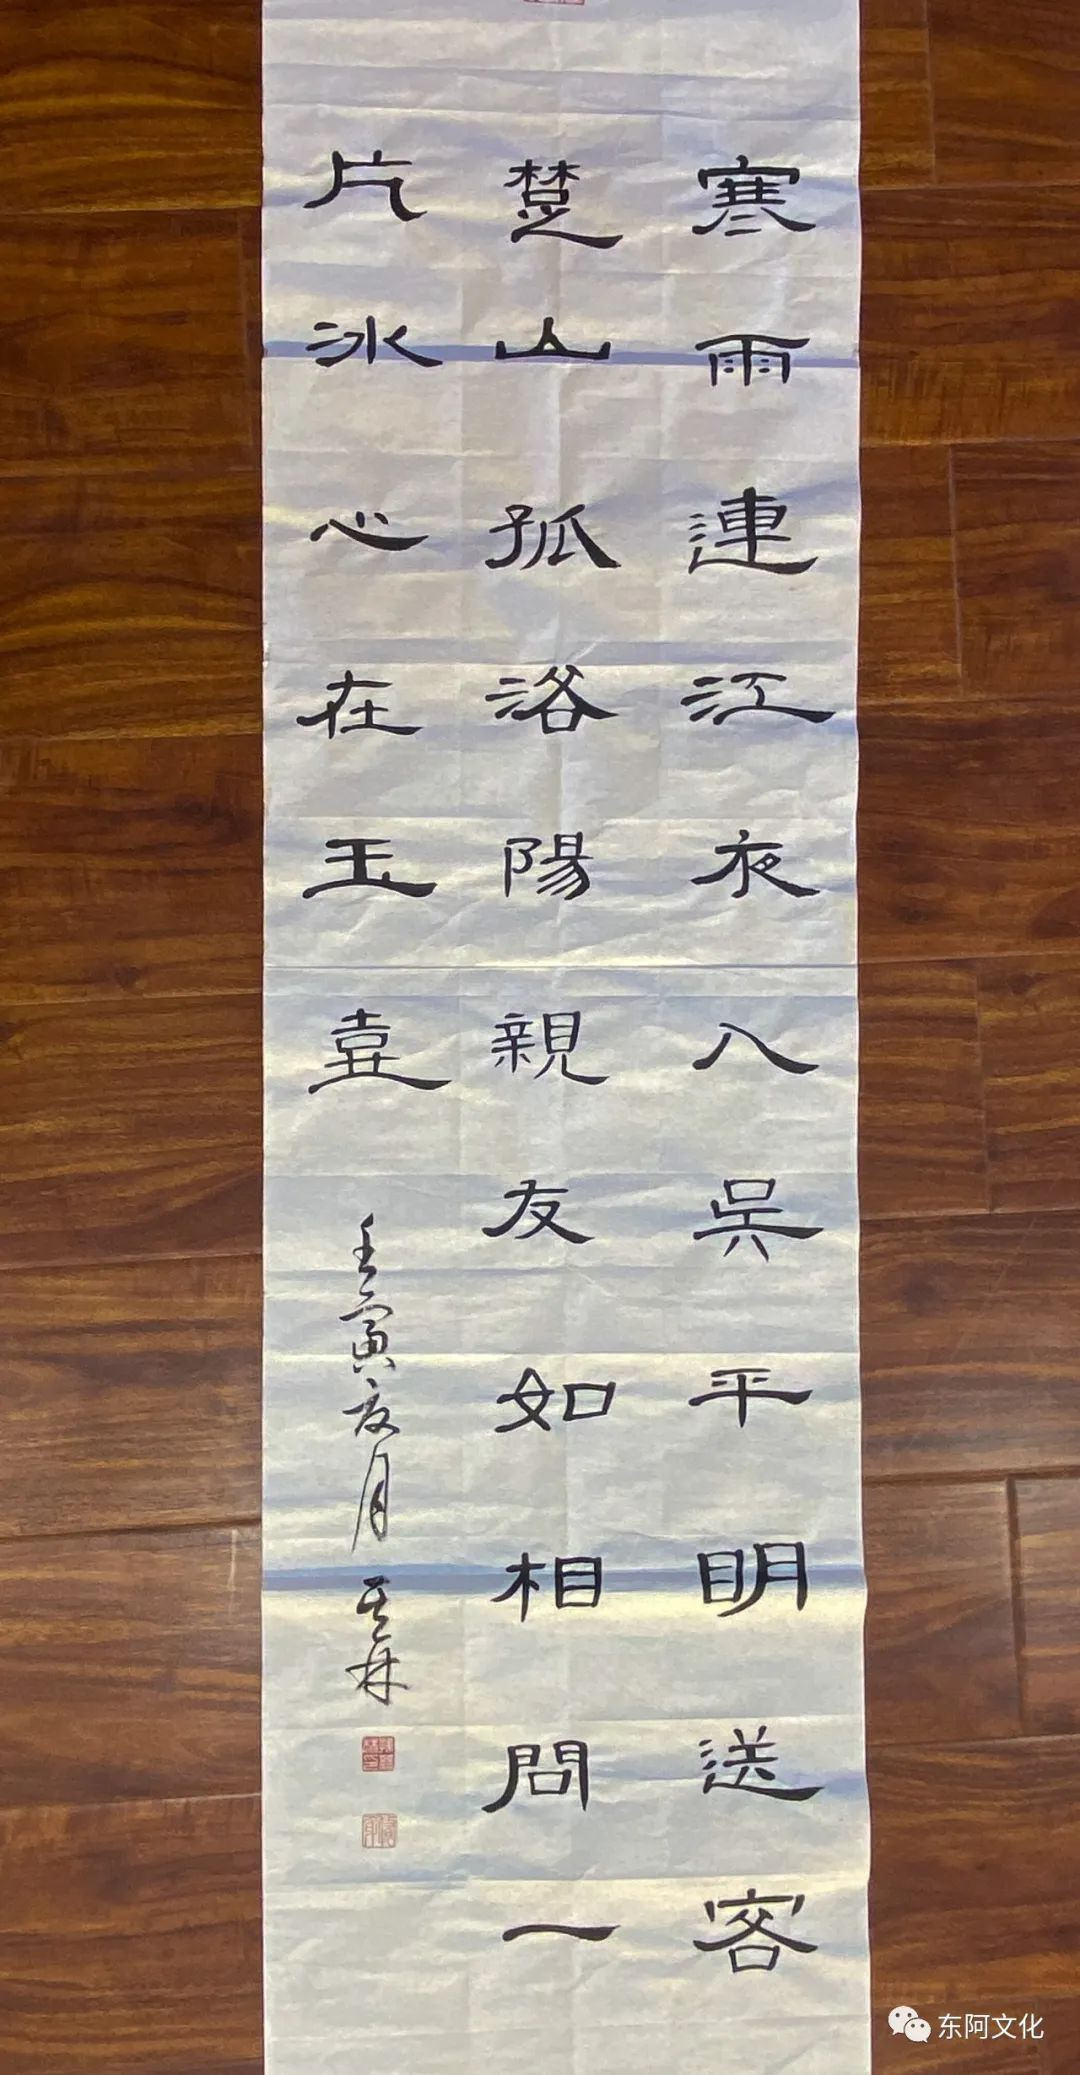 寒雨連江夜入吳平明送客
楚山孤洛陽親友如相問一
片冰心在玉壺
壬寅夏月
东阿文化